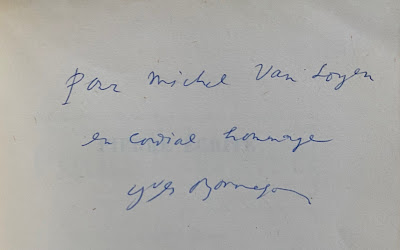 Pour Michel Van Loyen
en cordial hommage
Yves Bonnefoy